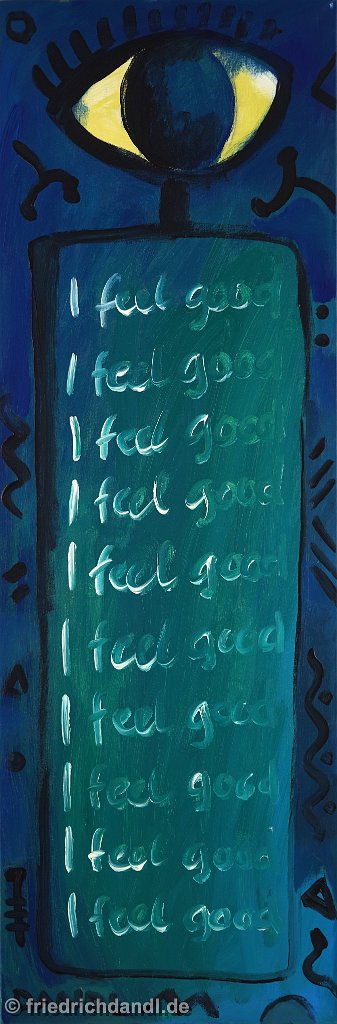 I feel good
I feel good
I feel good
I feel good
I feel good
I feel good
I feel good
I feel good
I feel good
I feel good
© friedrichdandl.de